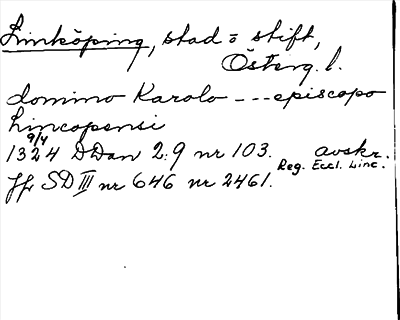 Linköping, stad = stift,
Österg. l.
domino Karolo --- episcopo
Lincopensi
9/4
1324 DDan 2:9 nr 103. avskr.
Reg. Eccl. Linc.
Jfr SD III nr 646 nr 2461.